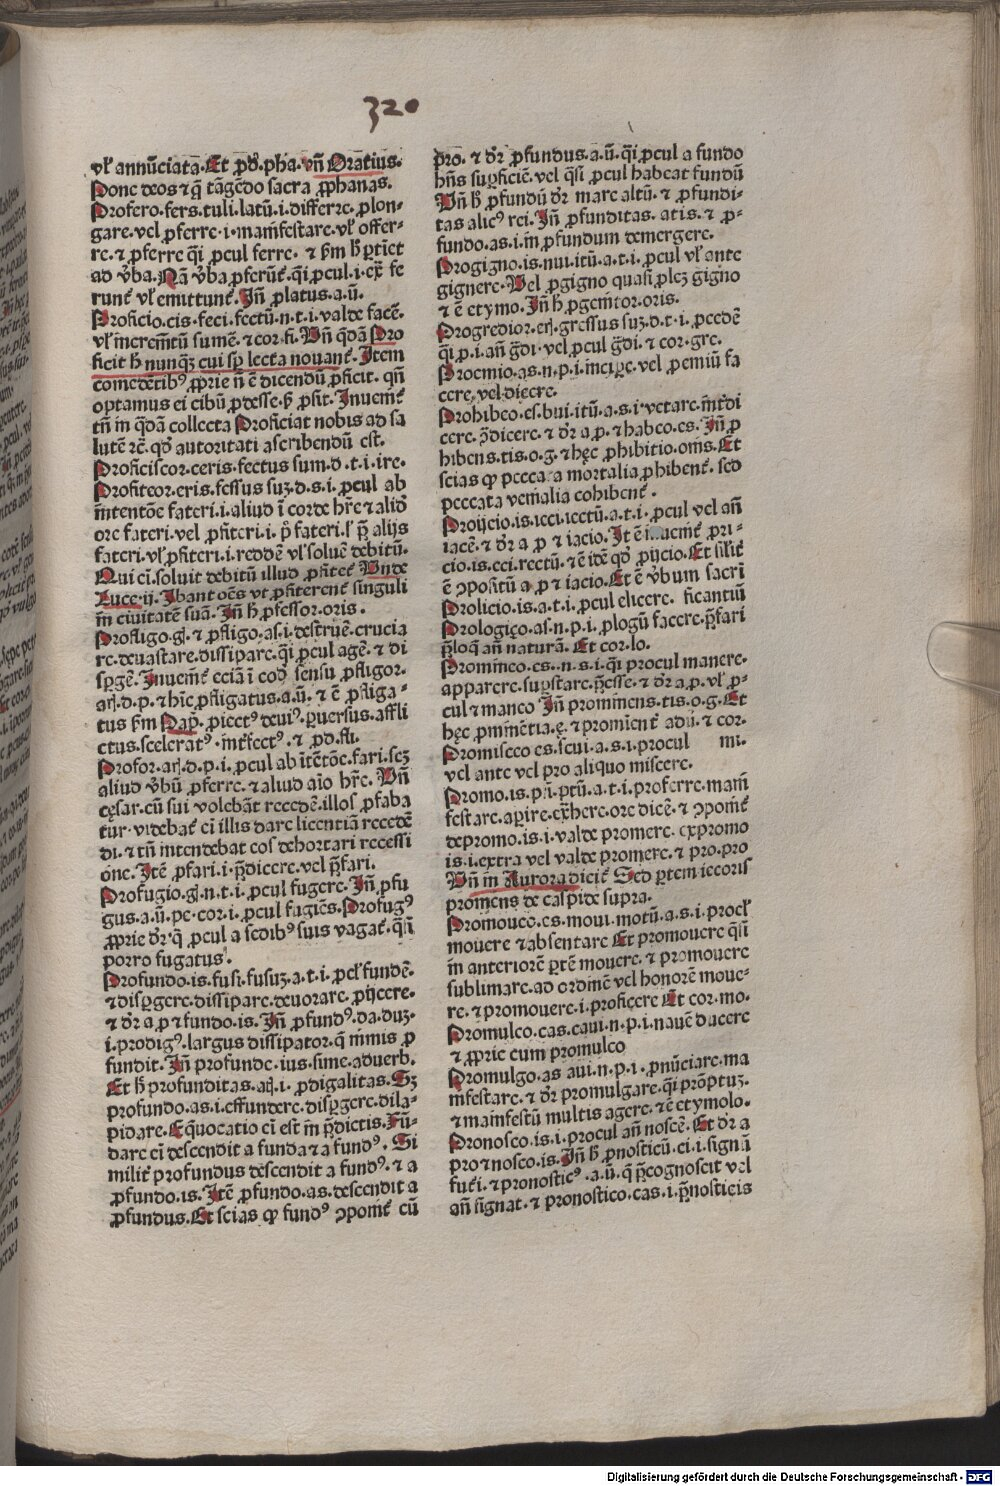 320
vl' annūciata. Et ꝓd'. pha. vn̄ Oratius.
Pone deos et q̄ tāgēdo sacra ꝓphanas.
Profero. fers. tuli. latū. i. differre. ꝓlon-
gare. vel ꝓferre. i. manifestare. vl' offer-
re. ⁊ ꝓferre q̄i ꝓcul ferre. ⁊ ẜm h̄ ꝑtīet
ad v̓ba. Nā v̓ba ꝓferūt'. q̄i ꝓcul. i. ex̄ fe
runt' vl' emittunt'. In̄ ꝓlatus. a. ū.
Proficio. cis. feci. fectū. n. t. i. valde facē.
vl' incremētū sumē. ⁊ cor. fi. Vn̄ q̄dā Pro
ficit h̄ nunqꝫ cui sꝑ lecta nouant'. Item
comedētibꝰ ꝓprie n̄ ē dicendū ꝓficit. qn̄
optamus ei cibū ꝓdesse. h̄ ꝓsit. Inuenit'
tn̄ in q̄dā collecta Proficiat nobis ad sa
lutē ꝛc̄. qd' autoritati ascribendū est.
Proficiscor. ceris. fectus sum. d. t. i. ire.
Profiteor. eris. fessus suꝫ. d. s. i. ꝓcul ab
intentōe fateri. i. aliud ī corde hr̄e ⁊ aliđ
ore fateri. vel ꝓfiteri. i. p̄ fateri. s' p̄ alijs
fateri. vl' ꝓfiteri. i. reddē vl' soluē debitū.
Qui eī. soluit debitū illud ꝓfitet' Unde
Luce. ij. Ibant oēs vt ꝓfiterent' singuli
in ciuitatē suā. In̄ h̄ ꝓfessor. oris.
Profligo. gl. ⁊ ꝓfligo. as. i. destruē. crucia
re. deuastare. dissipare. q̄i ꝓcul agē. ⁊ di
sꝑgē. Inuenit' eciā ī eoď sensu ꝓfligor.
arl. d. p. ⁊ hīc ꝓfligatus. a. ū. ⁊ ē ꝓfliga-
tus ẜm Pap̄. ꝓiectꝰ deuiꝰ. ꝑuersus. affli
ctus. sceleratꝰ. int̓fectꝰ. ⁊ ꝓd. fli.
Profor. arl. d. p. i. ꝓcul ab ītētōe. fari. scꝫ
aliud v̓bū ꝓferre. ⁊ aliud aīo hr̄e. Vn̄
cęsar. cū sui volebāt recedē. illos ꝓfaba
tur. videbat' eī illis dare licentiā recedē
di. ⁊ tn̄ intendebat eos dehortari recessi
one. Itē ꝓfari. i. p̄dicere. vel p̄fari.
Profugio. gl. n. t. i. ꝓcul fugere. In̄ ꝓfu
gus. a. ū. pe. cor. i. ꝓcul fugiēs. Profugꝰ
ꝓprie dr̄. q̄ ꝓcul a sedibꝰ suis vagat'. q̄si
porro fugatus.
Profundo. is. fusi. fusuꝫ. a. t. i. ꝓcl' fundē.
⁊ disꝑgere. dissipare. deuorare. ꝓijcere.
⁊ dr̄ a ꝓ ⁊ fundo. is. In̄ ꝓfundꝰ. da. duꝫ.
i. prodigꝰ. largus dissipator. q̄ nimis ꝓ
fundit. In̄ profunde. ius. sime. aduerb.
Et h̄ profunditas. arl. i. ꝓdigalitas. Sꝫ
profundo. as. i. effundere. disꝑgere. dila-
pidare. Equocatio eī est in p̄dictis. Fū-
dare eī descendit a funda ⁊ a fundꝰ. Si
milit' profundus descendit a fundꝰ. ⁊ a
ꝓfundo. is. Itē ꝓfundo. as. descendit a
ꝓfundus. Et scias ꝙ fundꝰ ɔponit' cū
pro. ⁊ dr̄ ꝓfundus. a. ū. q̄i ꝓcul a fundo
hn̄s suꝑficiē. vel q̄si ꝓcul habeat fundū
Vn̄ h̄ ꝓfundū dr̄ mare altū. ⁊ ꝓfundi-
tas alicꝰ rei. In̄ ꝓfunditas. atis. ⁊ ꝓ-
fundo. as. i. in ꝓfundum demergere.
Progigno. is. nui. itū. a. t. i. ꝓcul vl' ante
gignere. Vel ꝓgigno quasi ꝓleꝫ gigno
⁊ ē etymo. In̄ h̄ ꝓgenitor. oris.
Progredior. erl. gressus suꝫ. d. t. i. ꝓcedē
q̄i ꝓ. i. an̄ ḡdi. vel ꝓcul ḡdi. ⁊ cor. gre.
Proemio. as. n. p. i. incipe. vel ꝓemiū fa
cere. vel dicere.
Prohibeo. es. bui. itū. a. s. i. vetare. int̓di
cere. ɔ̄dicere. ⁊ dr̄ a ꝓ. ⁊ habeo. es. In̄ ꝓ
hibens. tis. o. g. ⁊ hęc ꝓhibitio. onis. Et
scias ꝙ peccata mortalia ꝓhibent'. sed
peccata venialia cohibent'.
Proijcio. is. ieci. iectū. a. t. i. ꝓcul vel an̄
iacē. ⁊ dr̄ a ꝓ ⁊ iacio. It ē inuenit' ꝓri-
cio. is. eci. rectū. ⁊ ē idē qď ꝓijcio. Et silit'
ē ɔpositū a ꝓ ⁊ iacio. Et ē v̓bum sacri
Prolicio. is. a. t. i. ꝓcul elicere. ficantiū
Prologięo. as. n. p. i. ꝓlogū facere. p̄fari
p̄loq̄ an̄ naturā. Et cor. lo.
Promineo. es. n. s. i. q̄i procul manere.
apparere. suꝑstare. p̄esse. ⁊ dr̄ a ꝓ. vl' ꝓ-
cul ⁊ maneo In̄ prominens. tis. o. g. Et
hęc ꝓminētia. ę. ⁊ promient' adū. ⁊ cor.
Promisceo es. scui. a. s. i. procul mi.
vel ante vel pro aliquo miscere.
Promo. is. psi. ptū. a. t. i. proferre. mani
festare. aꝑire. ex̄here. ore dicē. ⁊ ɔponit'
depromo. is. i. valde promere. expromo
is. i. extra vel valde promere. ⁊ pro. pro
Vn̄ in Aurora dicit' Sed ꝑtem iecoris
promens de caspide supra.
Promoueo. es. moui. motū. a. s. i. procl'
mouere ⁊ absentare Et promouere q̄si
in anteriorē ꝑtē mouere. ⁊ promouere
sublimare. ad ordinē vel honorē moue-
re. ⁊ promouere. i. proficere Et cor. mo.
Promulco. cas. caui. n. p. i. nauē ducere
⁊ ꝓprie cum promulco
Promulgo. as aui. n. p. i. ꝓnūciare. ma
nifestare. ⁊ dr̄ promulgare. q̄i prōptuꝫ.
⁊ manifestū multis agere. ⁊ ē etymolo.
Pronosco. is. i. procul an̄ noscē. Et dr̄ a
pro ⁊ nosco. is. In̄ h̄ ꝓnosticū. ci. i. signū
futi. ⁊ pronosticꝰ. a. ū. q̄ p̄cognoscit vel
an̄ signat. ⁊ pronostico. cas. i. p̄nosticis
Digitalisierung gefördert durch die Deutsche Forschungsgemeinschaft - DFG